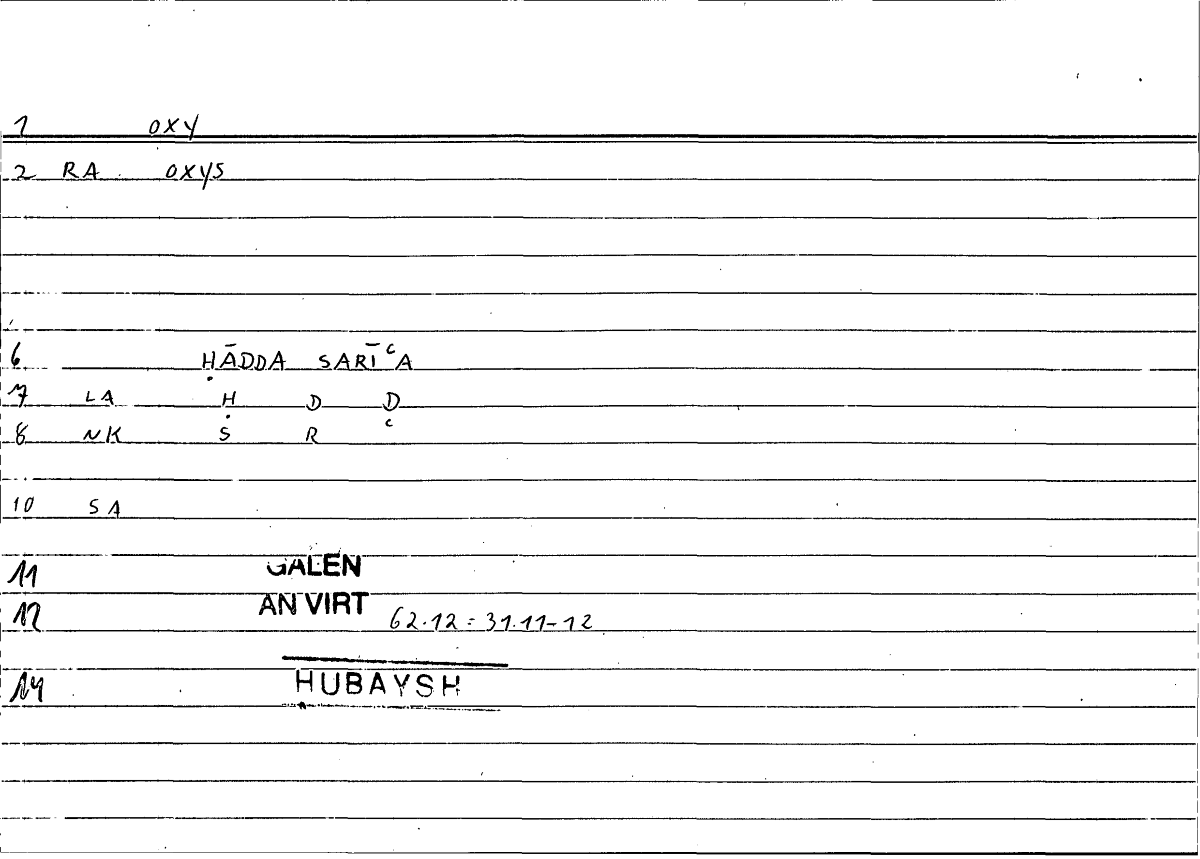 1 OXY
2 RA OXYS
6 ḤĀDDA SARĪʿA
7 LA Ḥ D D
8 NK S R ʿ
10 SA
11 GALEN
12 AN VIRT 62.12 = 31.11-12
14 HUBAYSH